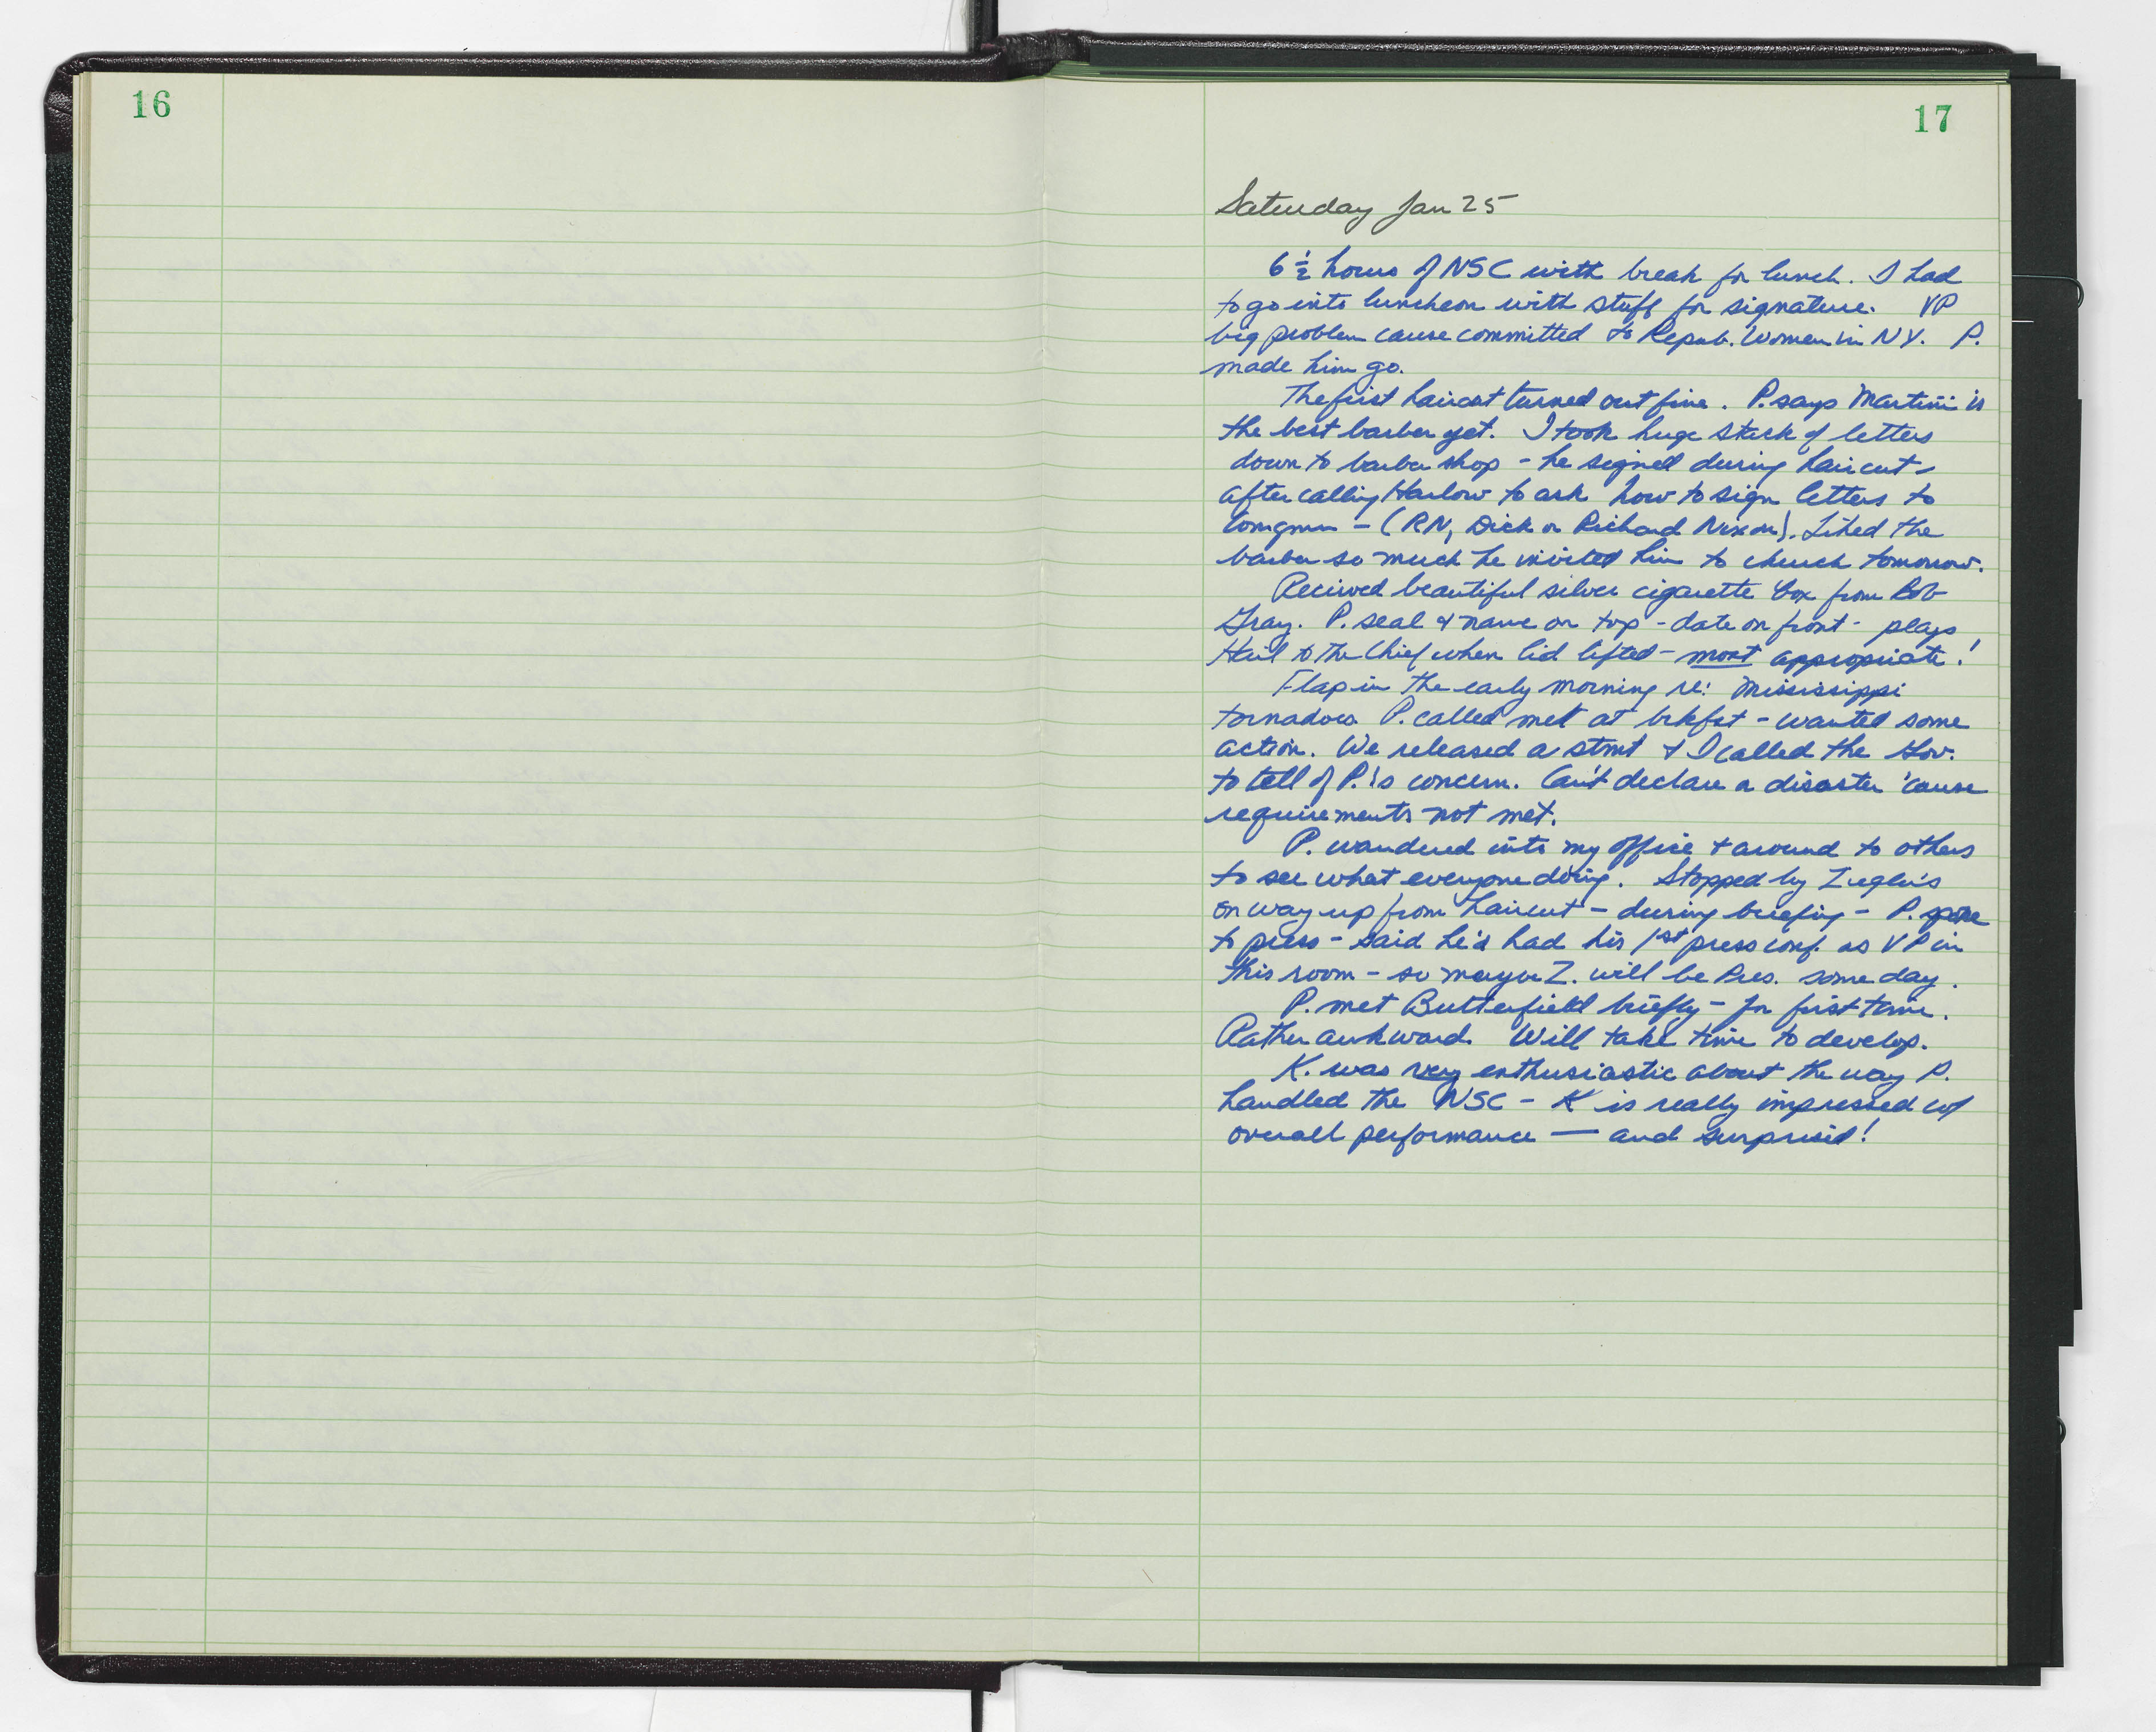 16
17
Saturday Jan 25
6½ hours of NSC with break for lunch. I had
to go into luncheon with stuff for signature. VP
big problem cause committed to Repub. Women in NY. P.
made him go.
The first haircut turned out fine. P. says Martini is
the best barber yet. I took huge stack of letters
down to barber shop - he signed during haircut -
after calling Harlow to ask how to sign letters to
Congmn - (RN, Dick or Richard Nixon). Liked the
barber so much he invited him to church tomorrow.
Recieved beautiful silver cigarette box from Bob
Gray. P. seal & name on top - date on front - plays
Hail to the Chief when lid lifted - most appropriate!
Flap in the early morning re: Mississippi
tornadoes P. called me at brkfst - wanted some
action. We released a stmt & I called the Gov.
to tell of P.'s concern. Can't declare a disaster 'cause
requirements not met.
P. wandered into my office & around to others
to see what everyone doing. Stopped by Zieglers
on way up from haircut - during briefing - P. spoke
to press - said he'd had his 1st press conf. as VP in
this room - so maybe Z. will be Pres. some day.
P. met Butterfield briefly - for first time.
Rather awkward. Will take time to develop.
K. was very enthusiastic about the way P.
handled the NSC - K is really impressed w/
overall performance — and surprised!